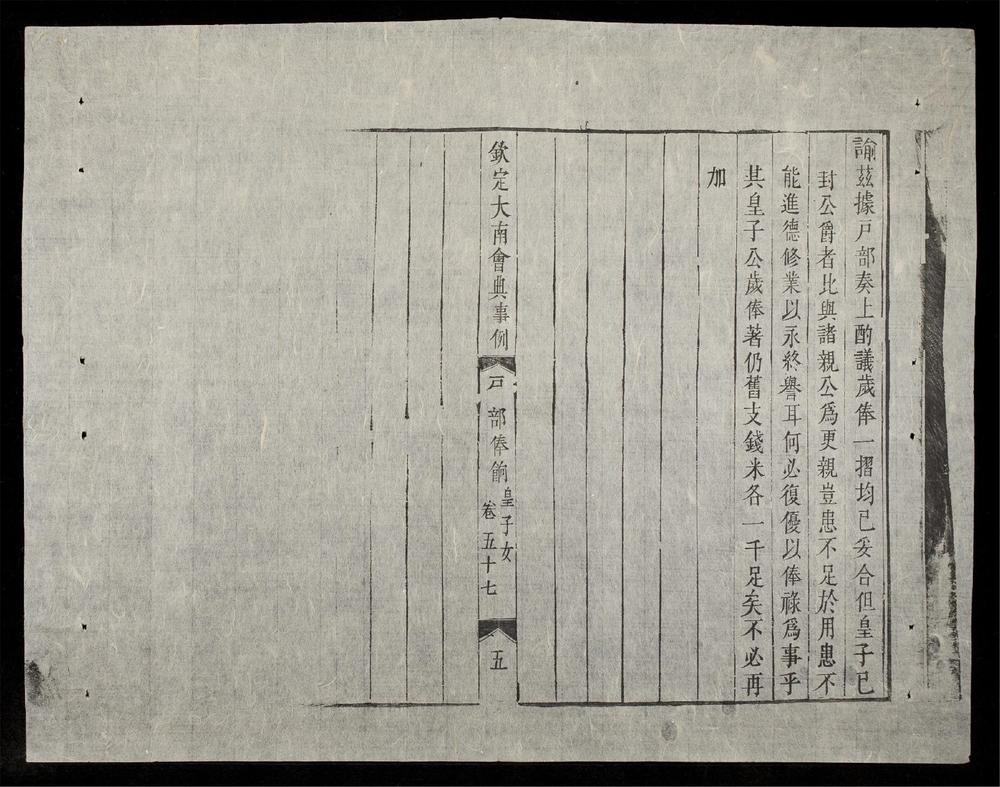 諭茲據戸部奏上酌議歲俸一摺均已妥合但皇子已
封公爵者比與諸親公爲更親豈患不足於用患不
能進德修業以永終譽耳何必復優以俸祿爲事乎
其皇子公歲俸著仍舊支錢米各一千足矣不必再
加
欽定大南會典事例
戸部俸餉
皇子女
卷五十七
五